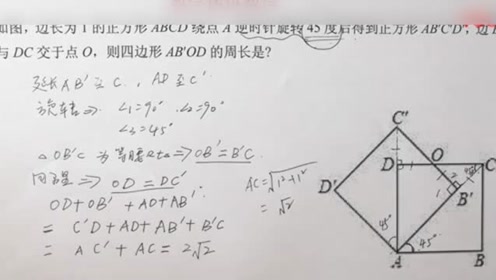 如图，边长为 1 的正方形 ABCD 绕点 A 逆时针旋转 45 度后得到正方形 AB'C'D'，边
与 DC 交于点 O，则四边形 AB'OD 的周长是？
延长 AB' 至 C，AD 至 C'
旋转 ⇒ ∠1=90° ∠2=90°
∠3=45°
△OB'C 为等腰Rt△ ⇒ OB'=B'C
同理 ⇒ OD=DC'
OD+OB'+AD+AB'
= C'D+AD+AB'+B'C
= AC'+AC=2√2
AC=√1²+1²
=√2
C'
D
O
C
D'
B'
1
2
45°
45°
A
B